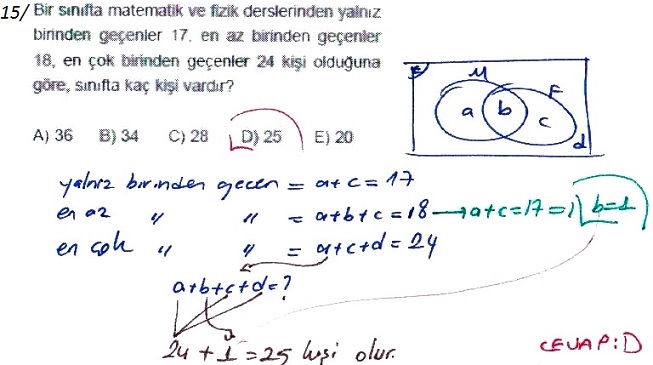 15/ Bir sınıfta matematik ve fizik derslerinden yalnız
birinden geçenler 17, en az birinden geçenler
18, en çok birinden geçenler 24 kişi olduğuna
göre, sınıfta kaç kişi vardır?
E M F
a b c d
A) 36 B) 34 C) 28 D) 25 E) 20
yalnız birinden geçen = a+c=17
en az " " = a+b+c=18 → a+c=17 => b=1
en çok " " = a+c+d=24
a+b+c+d=?
24+1=25 kişi olur.
CEVAP:D